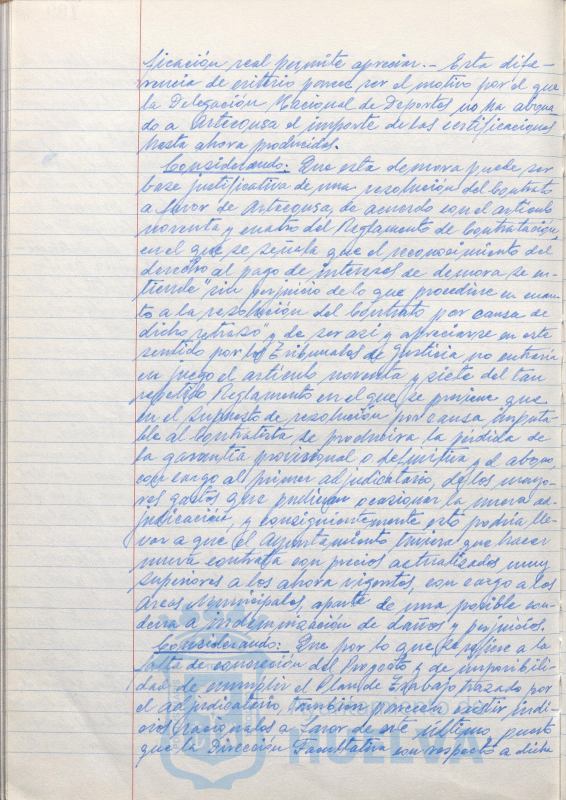 ficación real permite apreciar.- Esta dife-
rencia de criterio parece ser el motivo por el que
la Delegación Nacional de Deportes no ha abona-
do a Arteconsa el importe de las certificaciones
hasta ahora producidas.
Considerando: Que esta demora puede ser
base justificativa de una resolución del Contrato
a favor de Arteconsa, de acuerdo con el artículo
noventa y cuatro del Reglamento de Contratación,
en el que se señala que el reconocimiento del
derecho al pago de intereses de demora se en-
tiende "sin perjuicio de lo que procediere en cuan-
to a la resolución del Contrato por causa de
dicho retraso" y de ser así y apreciarse en este
sentido por los Tribunales de Justicia no entraría
en juego el artículo noventa y siete del tan
repetido Reglamento en el que se previene que
en el supuesto de resolución por causa imputa-
ble al Contratista se producirá la pérdida de
la garantía provisional o definitiva y el abono,
con cargo al primer adjudicatario, de los mayo-
res gastos que pudieran ocasionar la nueva ad-
judicación, y consiguientemente esto podría lle-
var a que el Ayuntamiento tuviera que hacer
nueva contrata con precios actualizados muy
superiores a los ahora vigentes, con cargo a las
Arcas Municipales, aparte de una posible con-
dena a indemnización de daños y perjuicios.
Considerando: Que por lo que se refiere a la
falta de concreción del Proyecto y de imposibili-
dad de cumplir el Plan de Trabajo trazado por
el adjudicatario, también parecen existir indi-
cios racionales a favor de este último, puesto
que la Dirección Facultativa con respecto a dicha
HUELVA